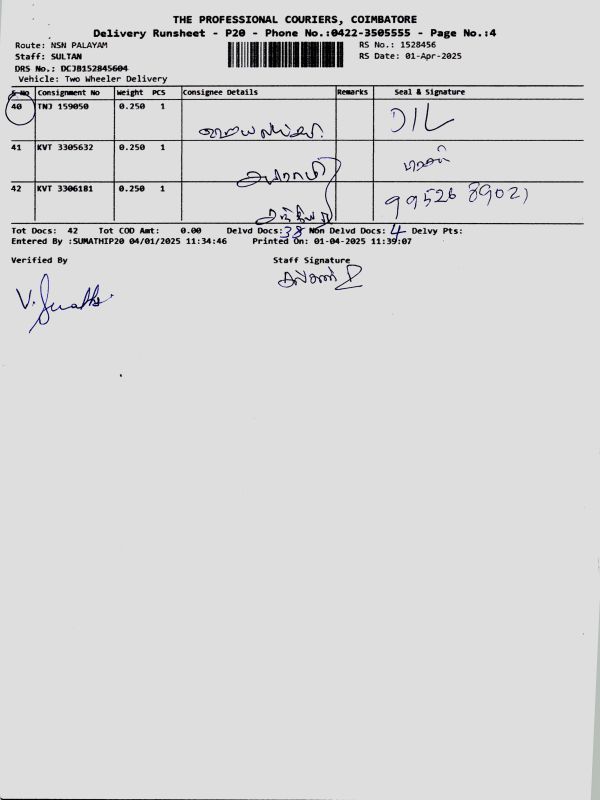 THE PROFESSIONAL COURIERS, COIMBATORE
Delivery Runsheet - P20 - Phone No.:0422-3505555 - Page No.:4
Route: NSN PALAYAM RS No.: 1528456
Staff: SULTAN RS Date: 01-Apr-2025
DRS No.: DCJB152845604
Vehicle: Two Wheeler Delivery
S No Consignment No Weight PCS Consignee Details Remarks Seal & Signature
40 TNJ 159050 0.250 1 DIL
41 KVT 3305632 0.250 1
42 KVT 3306181 0.250 1 99526 89021
Tot Docs: 42 Tot COD Amt: 0.00 Delvd Docs: 38 Non Delvd Docs: 4 Delvy Pts:
Entered By :SUMATHIP20 04/01/2025 11:34:46 Printed On: 01-04-2025 11:39:07
Verified By Staff Signature